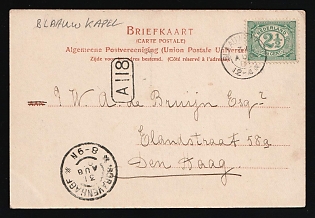 BLAAUW KAPEL
BRIEFKAART
(CARTE POSTALE)
Algemeene Postvereeniging (Union Postale Universelle)
Zijde voor het adres bestemd. (Côté réservé à l'adresse)
NEDERLAND
2½
A118
W. A. de Bruijn Esqre
Elandstraat 58a
Den Haag.
'S-GRAVENHAGE
31 AUG
8-9N